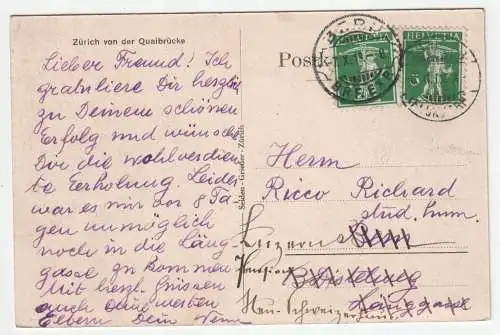 Zürich von der Quaibrücke
Lieber Freund! Ich
gratuliere Dir herzlich
zu Deinem schönen
Erfolg und wünsche
Dir die wohlverdien-
te Erholung. Leider
war es mir vor 8 Ta-
gen unmöglich
noch in die Läng-
gasse zu kommen
Mit herzl. Grüssen
auch Deine werten
Eltern Dein
Selden - Grieder - Zürich
Postk
HELVETIA
HELVETIA
5
Herrn
Ricco Richard
stud. hum.
Luzern
Pension
Neu-Schweizerhaus
Länggasse